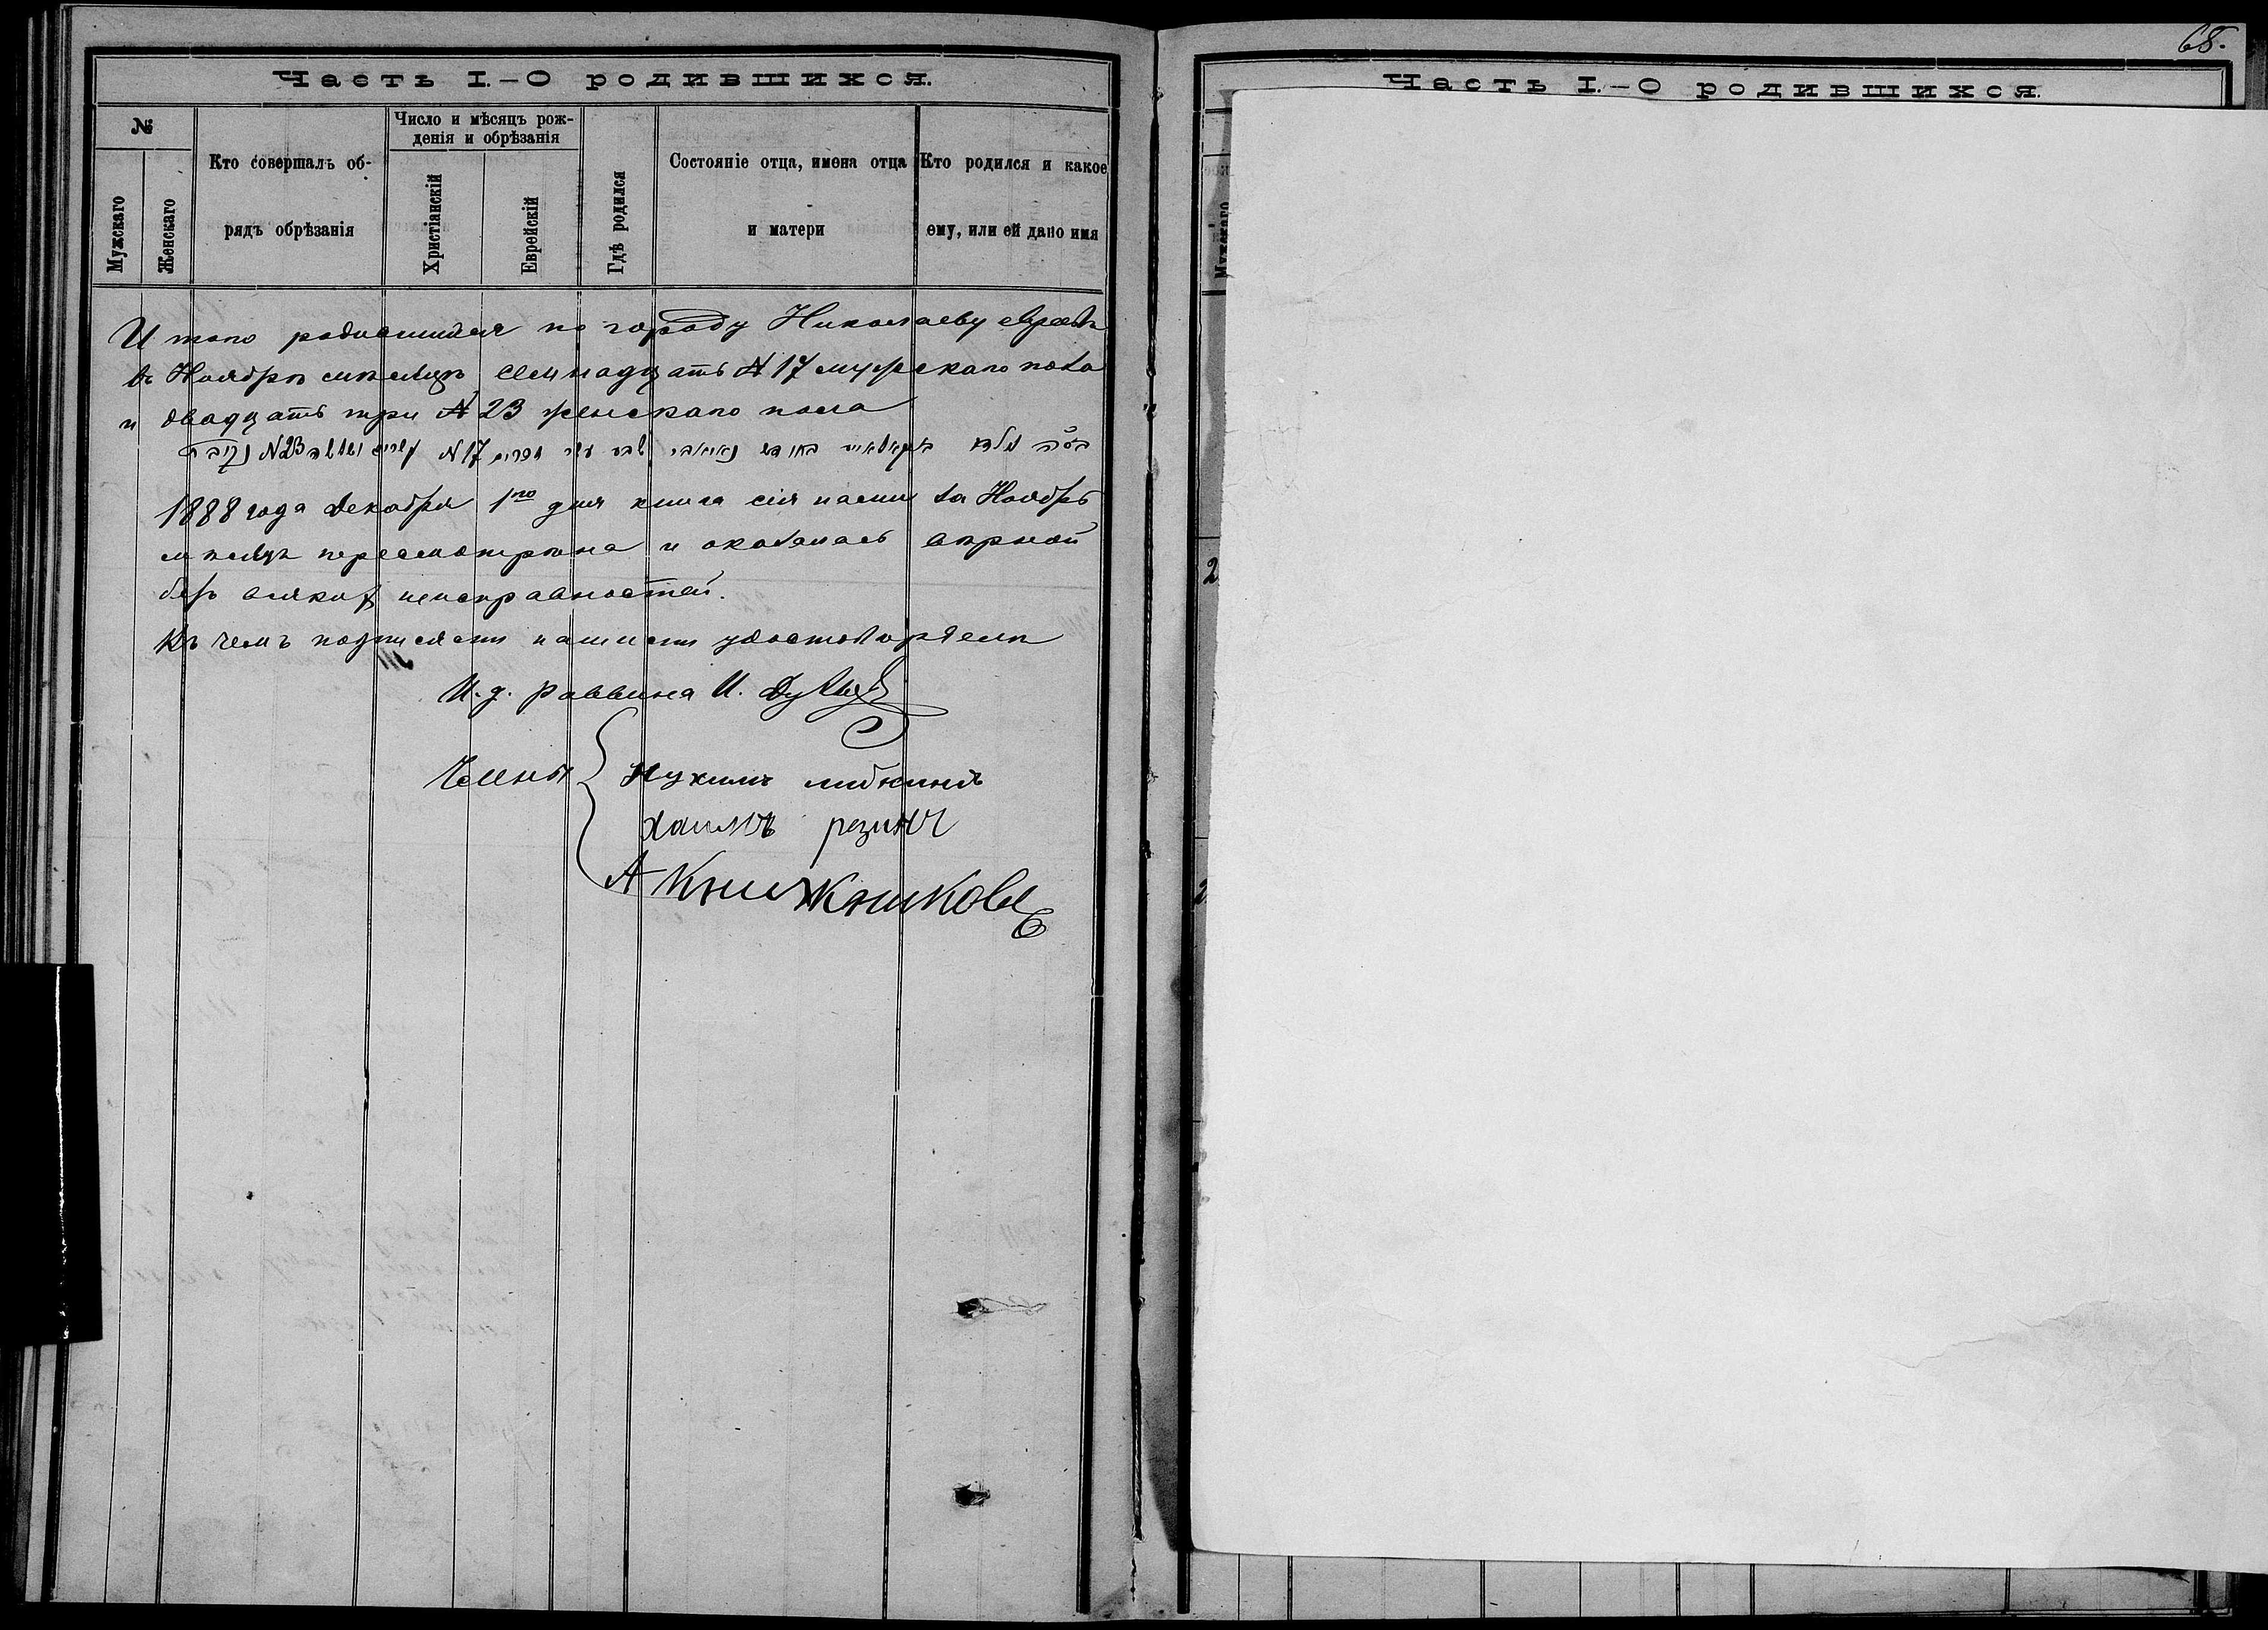 Часть I.—О родившихся.
№
Мужскаго
Женскаго
Кто совершалъ об-
рядъ обрѣзанія
Число и мѣсяцъ рож-
денія и обрѣзанія
Христіанскій
Еврейскій
Гдѣ родился
Состояніе отца, имена отца
и матери
Кто родился и какое
ему, или ей дано имя
Итого родившихся по городу Николаеву евреевъ
въ Ноябрѣ мѣсяцѣ семнадцать № 17 мужскаго пола
и двадцать три № 23 женскаго пола
N 23 N 17
1888 года Декабря 1го дня книга сія нами за Ноябрь
мѣсяцъ пересмотрѣна и оказалась вѣрной
безъ всякихъ неисправностей.
Въ чемъ подписями нашими удостовѣряемъ
И. д. раввина И.
Члены
Нухимъ
хаимъ резникъ
А Книжниковъ
68.
Часть I.—О родившихся.
Мужскаго
2
2